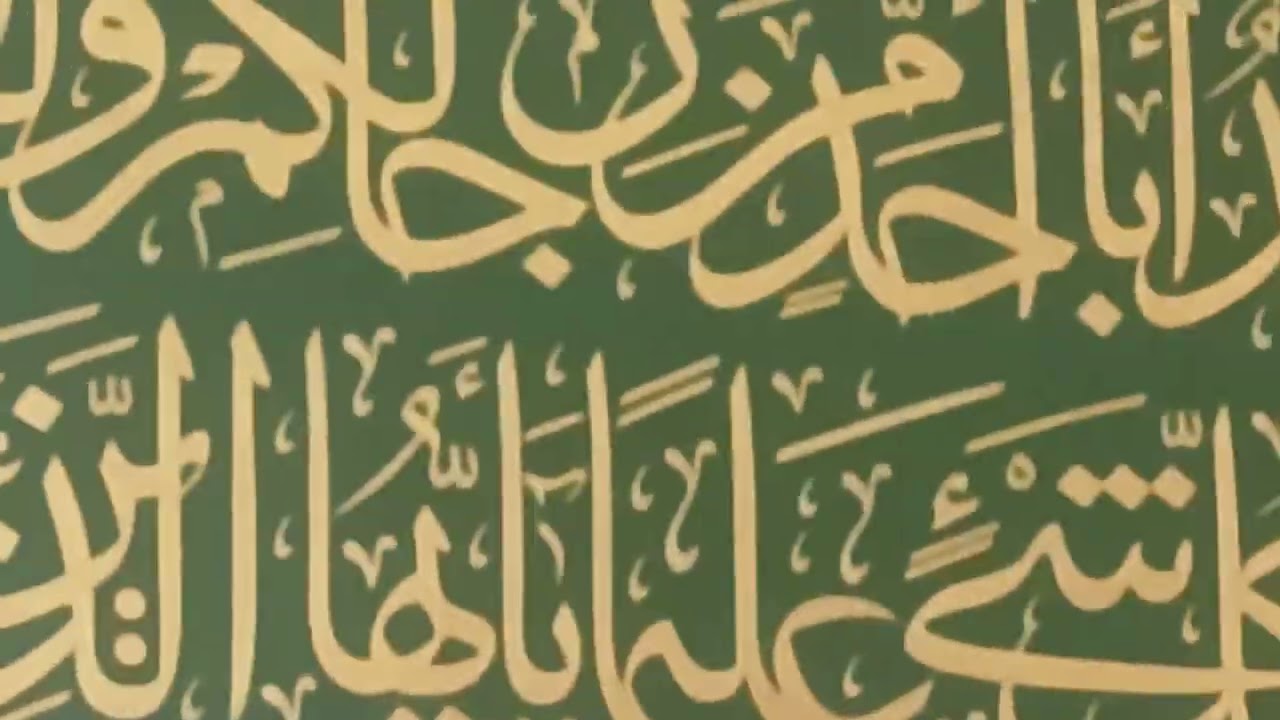 أَبَآ أَحَدٍ مِّن رِّجَالِكُمْ
كُلِّ شَىْءٍ عَلِيمًا يَٰٓأَيُّهَا ٱلَّذِينَ